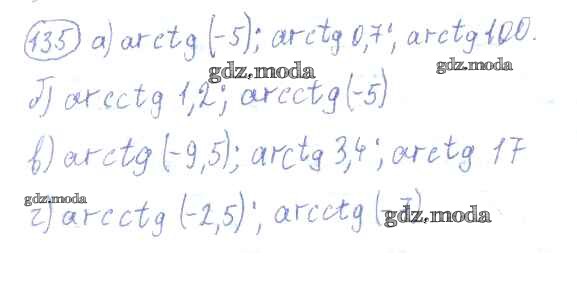 135 а) arctg (-5); arctg 0,7; arctg 100.
gdz.moda
gdz.moda
б) arcctg 1,2; arcctg (-5)
в) arctg (-9,5); arctg 3,4; arctg 17
gdz.moda
г) arcctg (-2,5); arcctg (-7)
gdz.moda